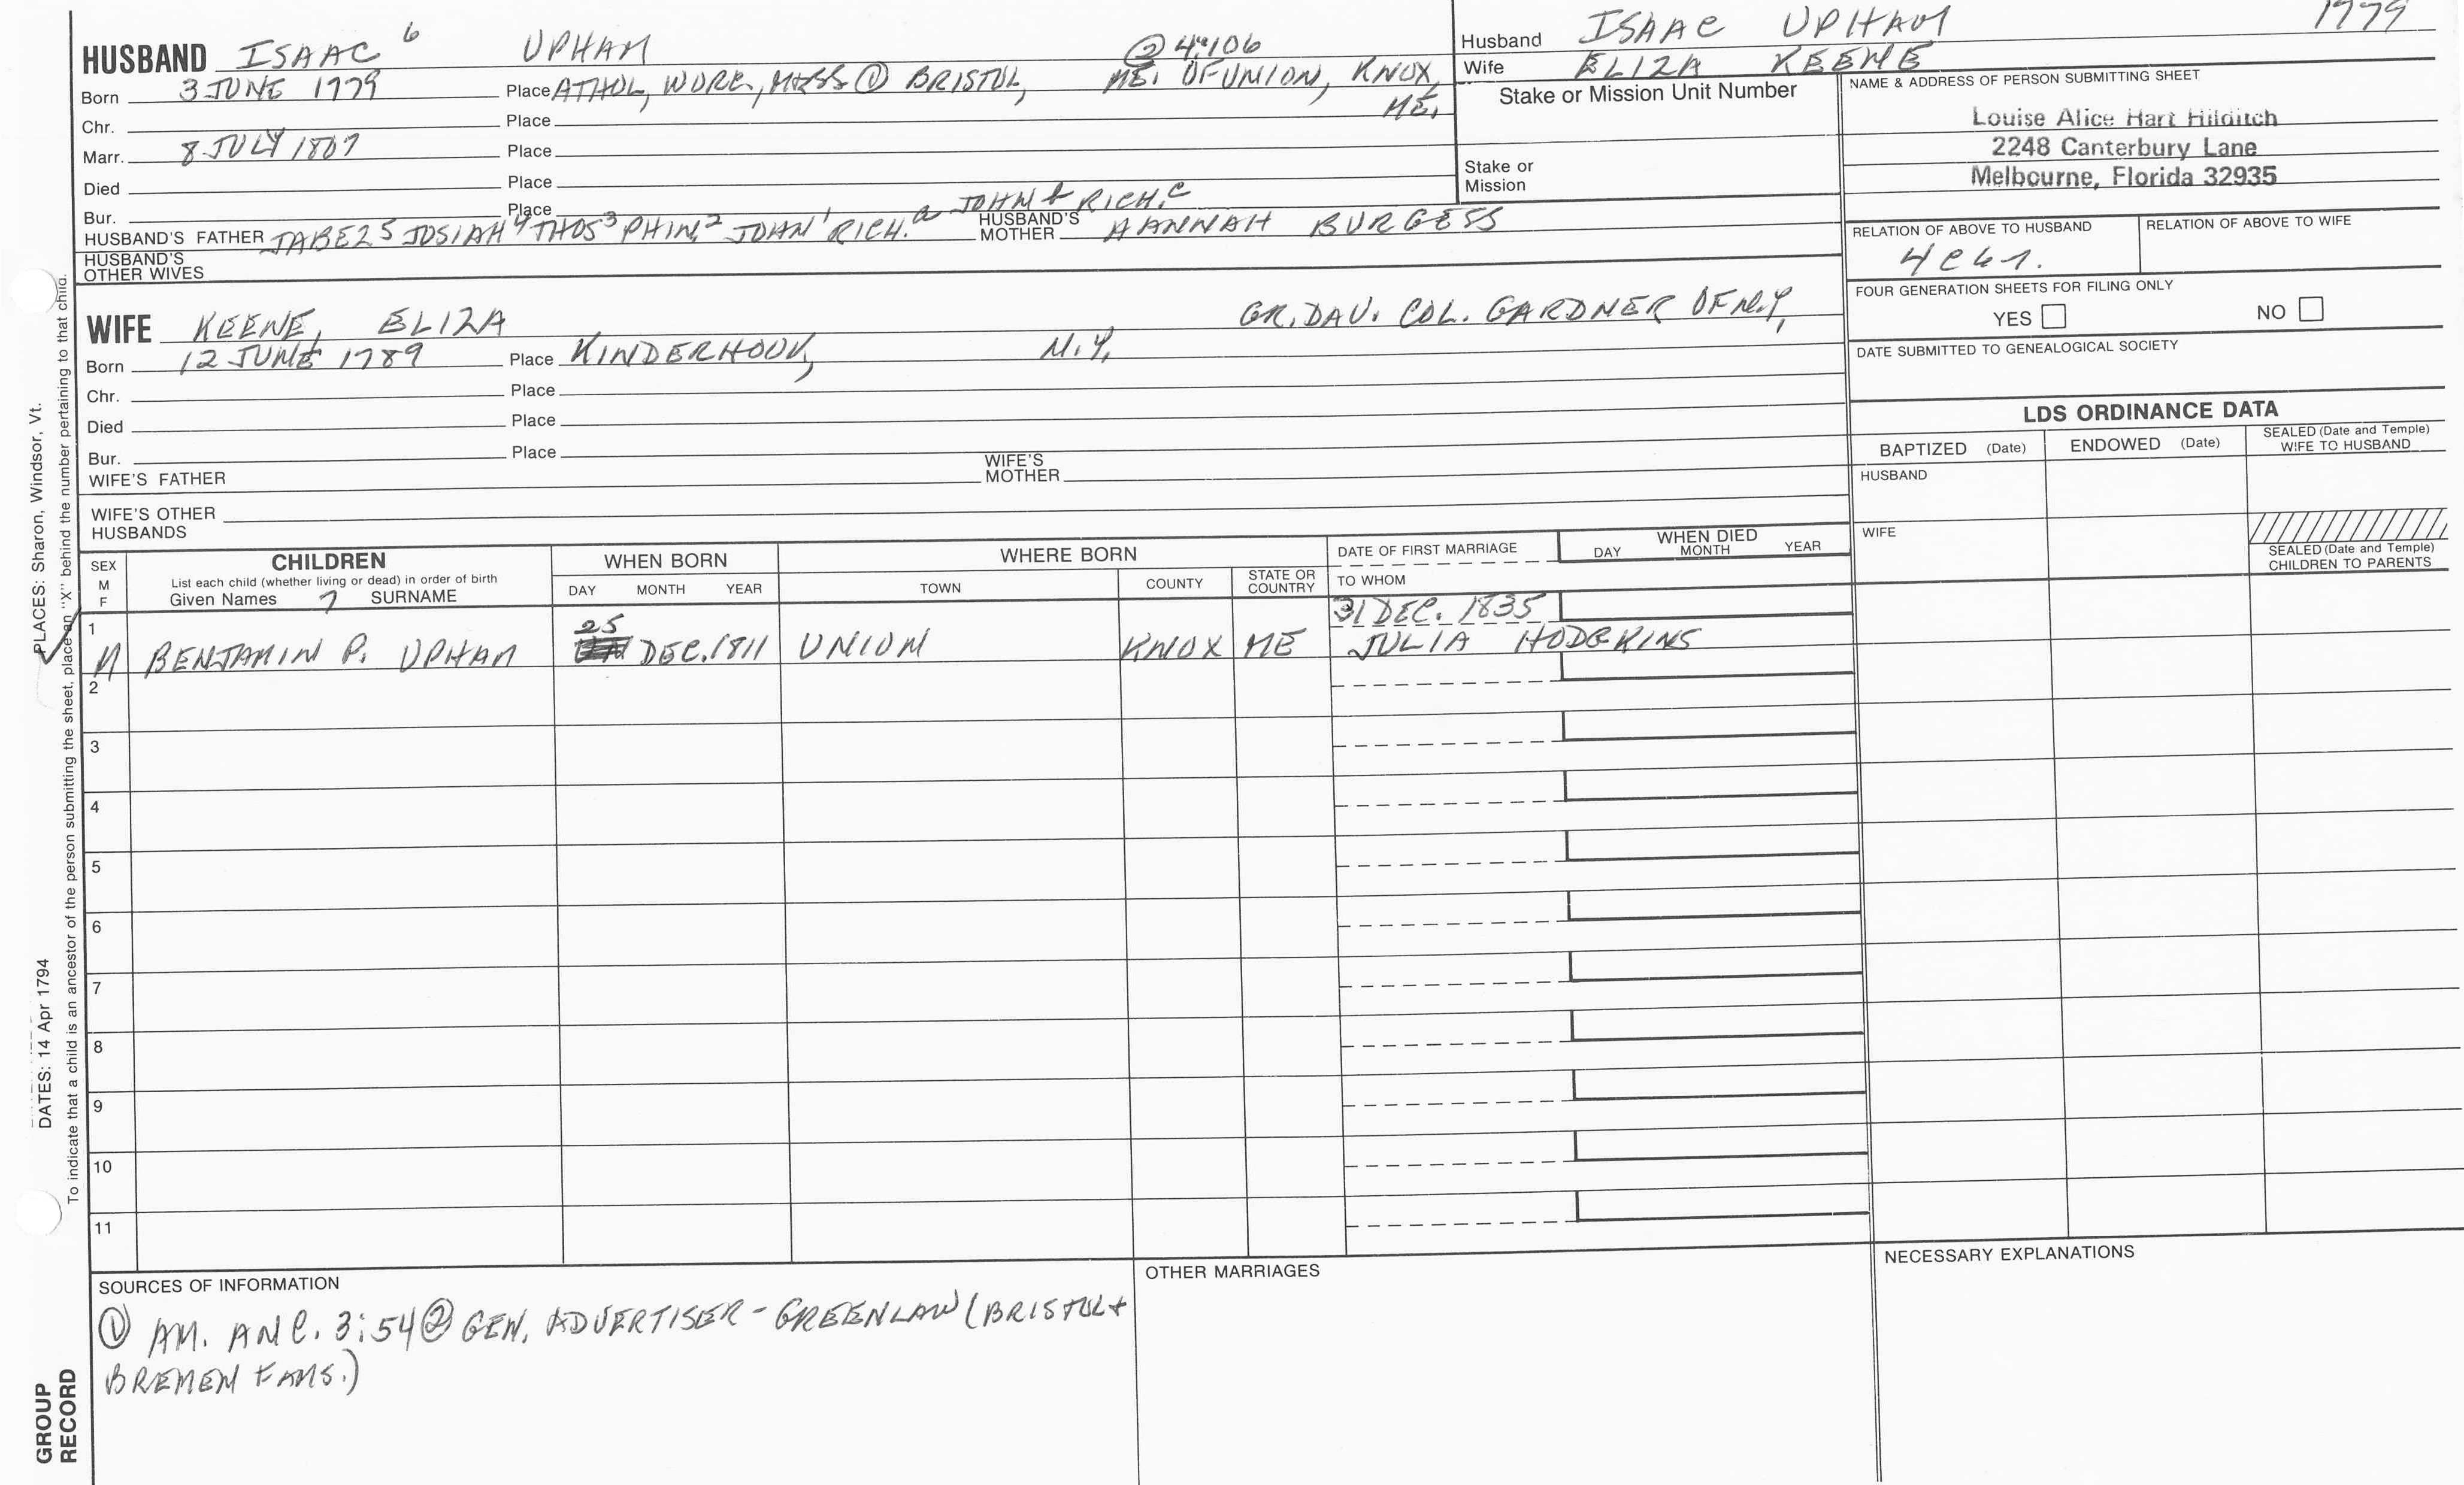 HUSBAND ISAAC 6 UPHAM @ 4:106
Born 3 JUNE 1779 Place ATHOL, WORC., MASS ① BRISTOL, ME. OF UNION, KNOX, ME.
Chr. Place
Marr. 8 JULY 1807 Place
Died Place
Bur. Place
HUSBAND'S FATHER JABEZ5 JOSIAH4 THOS3 PHIN.2 JOHN1 RICH.a JOHN b RICH.c HUSBAND'S MOTHER HANNAH BURGESS
HUSBAND'S OTHER WIVES
Husband ISAAC UPHAM 1779
Wife ELIZA KEENE
Stake or Mission Unit Number
Stake or Mission
NAME & ADDRESS OF PERSON SUBMITTING SHEET
Louise Alice Hart Hilditch
2248 Canterbury Lane
Melbourne, Florida 32935
RELATION OF ABOVE TO HUSBAND RELATION OF ABOVE TO WIFE
4C6R.
FOUR GENERATION SHEETS FOR FILING ONLY
YES NO
DATE SUBMITTED TO GENEALOGICAL SOCIETY
WIFE KEENE, ELIZA GR. DAU. COL. GARDNER OF N.Y.
Born 12 JUNE 1789 Place KINDERHOOK, N.Y.
Chr. Place
Died Place
Bur. Place
WIFE'S FATHER WIFE'S MOTHER
WIFE'S OTHER HUSBANDS
LDS ORDINANCE DATA
BAPTIZED (Date) ENDOWED (Date) SEALED (Date and Temple) WIFE TO HUSBAND
HUSBAND
WIFE
SEALED (Date and Temple) CHILDREN TO PARENTS
SEX M F CHILDREN WHEN BORN WHERE BORN DATE OF FIRST MARRIAGE WHEN DIED
List each child (whether living or dead) in order of birth DAY MONTH YEAR
Given Names 7 SURNAME DAY MONTH YEAR TOWN COUNTY STATE OR COUNTRY TO WHOM
1 31 DEC. 1835
M BENJAMIN P. UPHAM 25 DEC. 1811 UNION KNOX ME JULIA HODGKINS
2
3
4
5
6
7
8
9
10
11
SOURCES OF INFORMATION
① AM. ANC. 3:54 ② GEN. ADVERTISER - GREENLAW (BRISTOL +
BREMEN FAMS.)
OTHER MARRIAGES
NECESSARY EXPLANATIONS
PLACES: Sharon, Windsor, Vt.
DATES: 14 Apr 1794
To indicate that a child is an ancestor of the person submitting the sheet, place an "X" behind the number pertaining to that child.
GROUP
RECORD